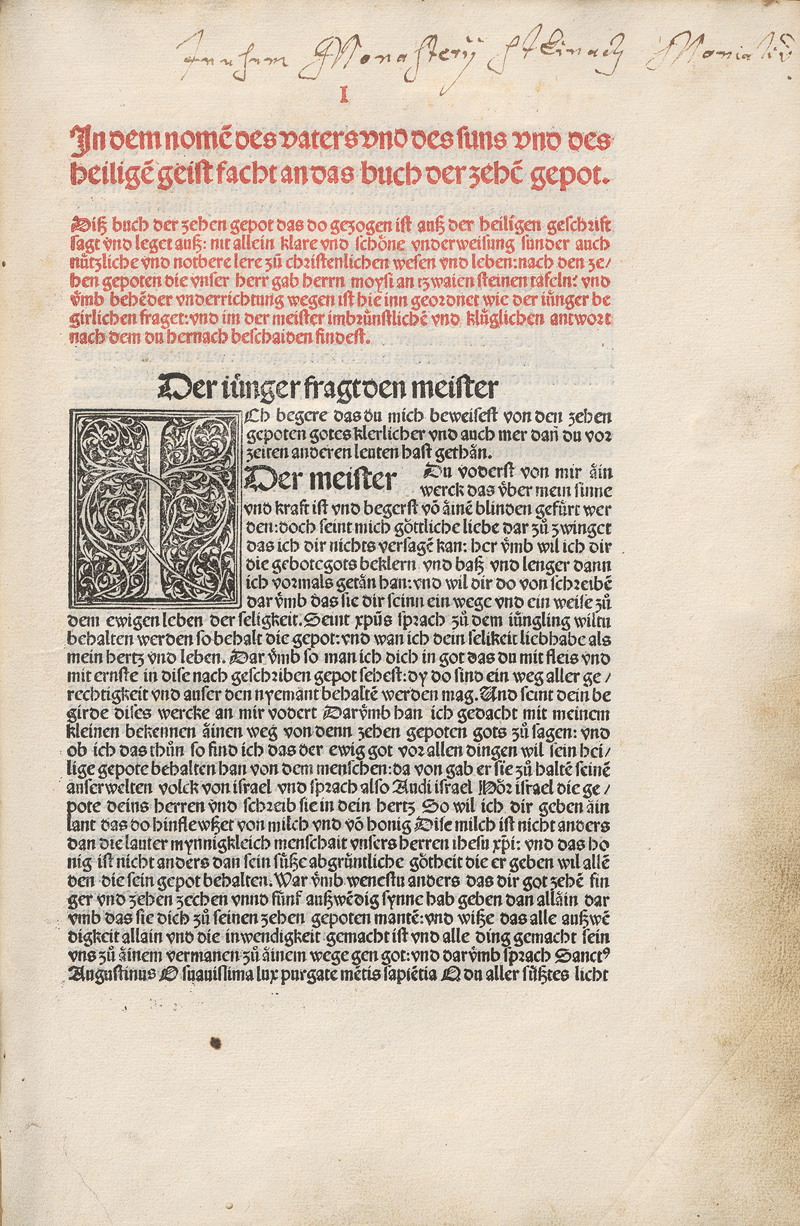 Monasterij
I
In dem nomē des vaters vnd des suns vnd des
heiligē geist facht an das buch der zehē gepot.
Ditz buch der zehen gepot das do gezogen ist auß der heiligen geschrift
sagt vnd leget auß: nit allein klare vnd schöne vnderweisung sunder auch
nützliche vnd notbere lere zů christenlichen wesen vnd leben: nach den ze/
hen gepoten die vnser herr gab herrn moysi an tzwaien steinen tafeln: vnd
vmb behēder vnderrichtung wegen ist hie inn geordnet wie der iünger be
girlichen fraget: vnd im der meister imbrünstlichē vnd klůglichen antwort
nach dem du hernach beschaiden findest.
Der iünger fragt den meister
ICh begere das du mich beweisest von den zehen
gepoten gotes klerlicher vnd auch mer dañ du vor
zeiten anderen leuten hast gethān.
Der meister Du voderst von mir äin
werck das v̈ber mein sinne
vnd kraft ist vnd begerst vō äinē blinden gefürt wer
den: doch seint mich göttliche liebe dar zů zwinget
das ich dir nichts versagē kan: her vmb wil ich dir
die gebotegots beklern vnd baß vnd lenger dann
ich vormals getän han: vnd wil dir do von schreibē
dar vmb das sie dir seinn ein wege vnd ein weise zů
dem ewigen leben der seligkeit. Seint xp̄us sprach zů dem iüngling wiltu
behalten werden so behalt die gepot: vnd wan ich dein selikeit liebhabe als
mein hertz vnd leben. Dar vmb so man ich dich in got das du mit fleis vnd
mit ernste in dise nach geschriben gepot sehest: dy do sind ein weg aller ge/
rechtigkeit vnd auser den nyemant behaltē werden mag. Und seint dein be
girde dises wercke an mir vodert Darvmb han ich gedacht mit meinem
kleinen bekennen äinen weg von denn zehen gepoten gots zů sagen: vnd
ob ich das thün so find ich das der ewig got vor allen dingen wil sein hei/
lige gepote behalten han von dem menschen: da von gab er sie zů haltē seinē
auserwelten volck von israel vnd sprach also Audi israel Hör israel die ge/
pote deins herren vnd schreib sie in dein hertz So wil ich dir geben äin
lant das do hinflewßet von milch vnd vō honig Dise milch ist nicht anders
dan die lauter mynnigkleich menschait vnsers herren ihesu xp̄i: vnd das ho
nig ist nicht anders dan sein süße abgrüntliche götheit die er geben wil allē
den die sein gepot behalten. War vmb wenestu anders das dir got zehē fin
ger vnd zehen zechen vnnd fünf außwēdig synne hab geben dan alläin dar
vmb das sie dich zů seinen zehen gepoten mantē: vnd wiße das alle außwē
digkeit allain vnd die inwendigkeit gemacht ist vnd alle ding gemacht sein
vns zů äinem vermanen zů äinem wege gen got: vnd darvmb sprach Sanctꝰ
Augustinus O suauissima lux purgate mētis sapiētia O du aller süßtes licht